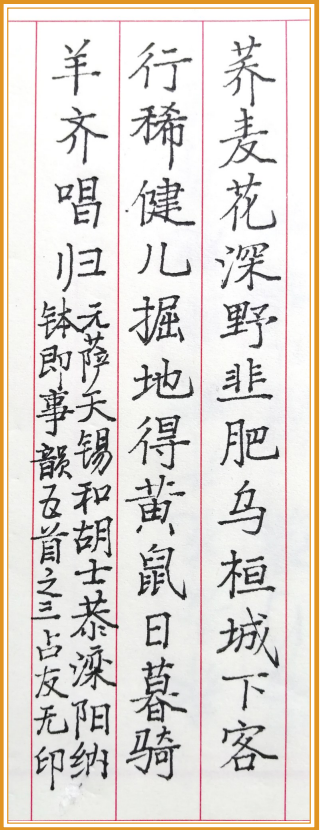 荞麦花深野韭肥乌桓城下客
行稀健儿掘地得黄鼠日暮骑
羊齐唱归
元萨天锡和胡士恭滦阳纳
钵即事韵五首之三占友无印